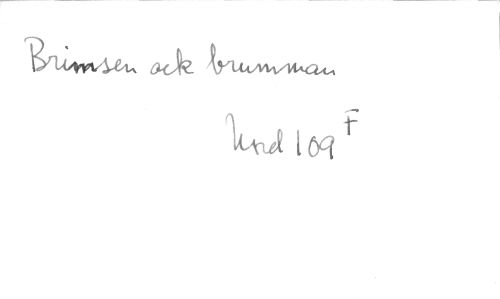 Brimsen ock brumman
Und 109 F